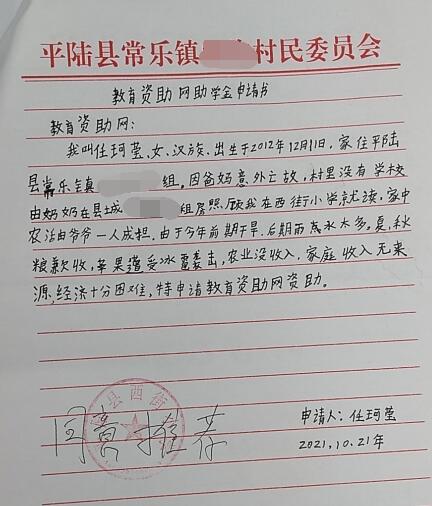 平陆县常乐镇 村民委员会
教育资助网助学金申请书
教育资助网:
我叫任珂莹、女、汉族、出生于2012年12月11日,家住平陆
县常乐镇 组。因爸妈意外亡故,村里没有学校
由奶奶在县城 组房照顾我在西街小学就读,家中
农活由爷爷一人成担。由于今年前期干旱、后期雨水太多。夏,秋
粮兼收,苹果遭受冰雹袭击,农业没收入,家庭收入无来
源,经济十分困难,特申请教育资助网资助。
县西街
同意推荐
申请人:任珂莹
2021.10.21年